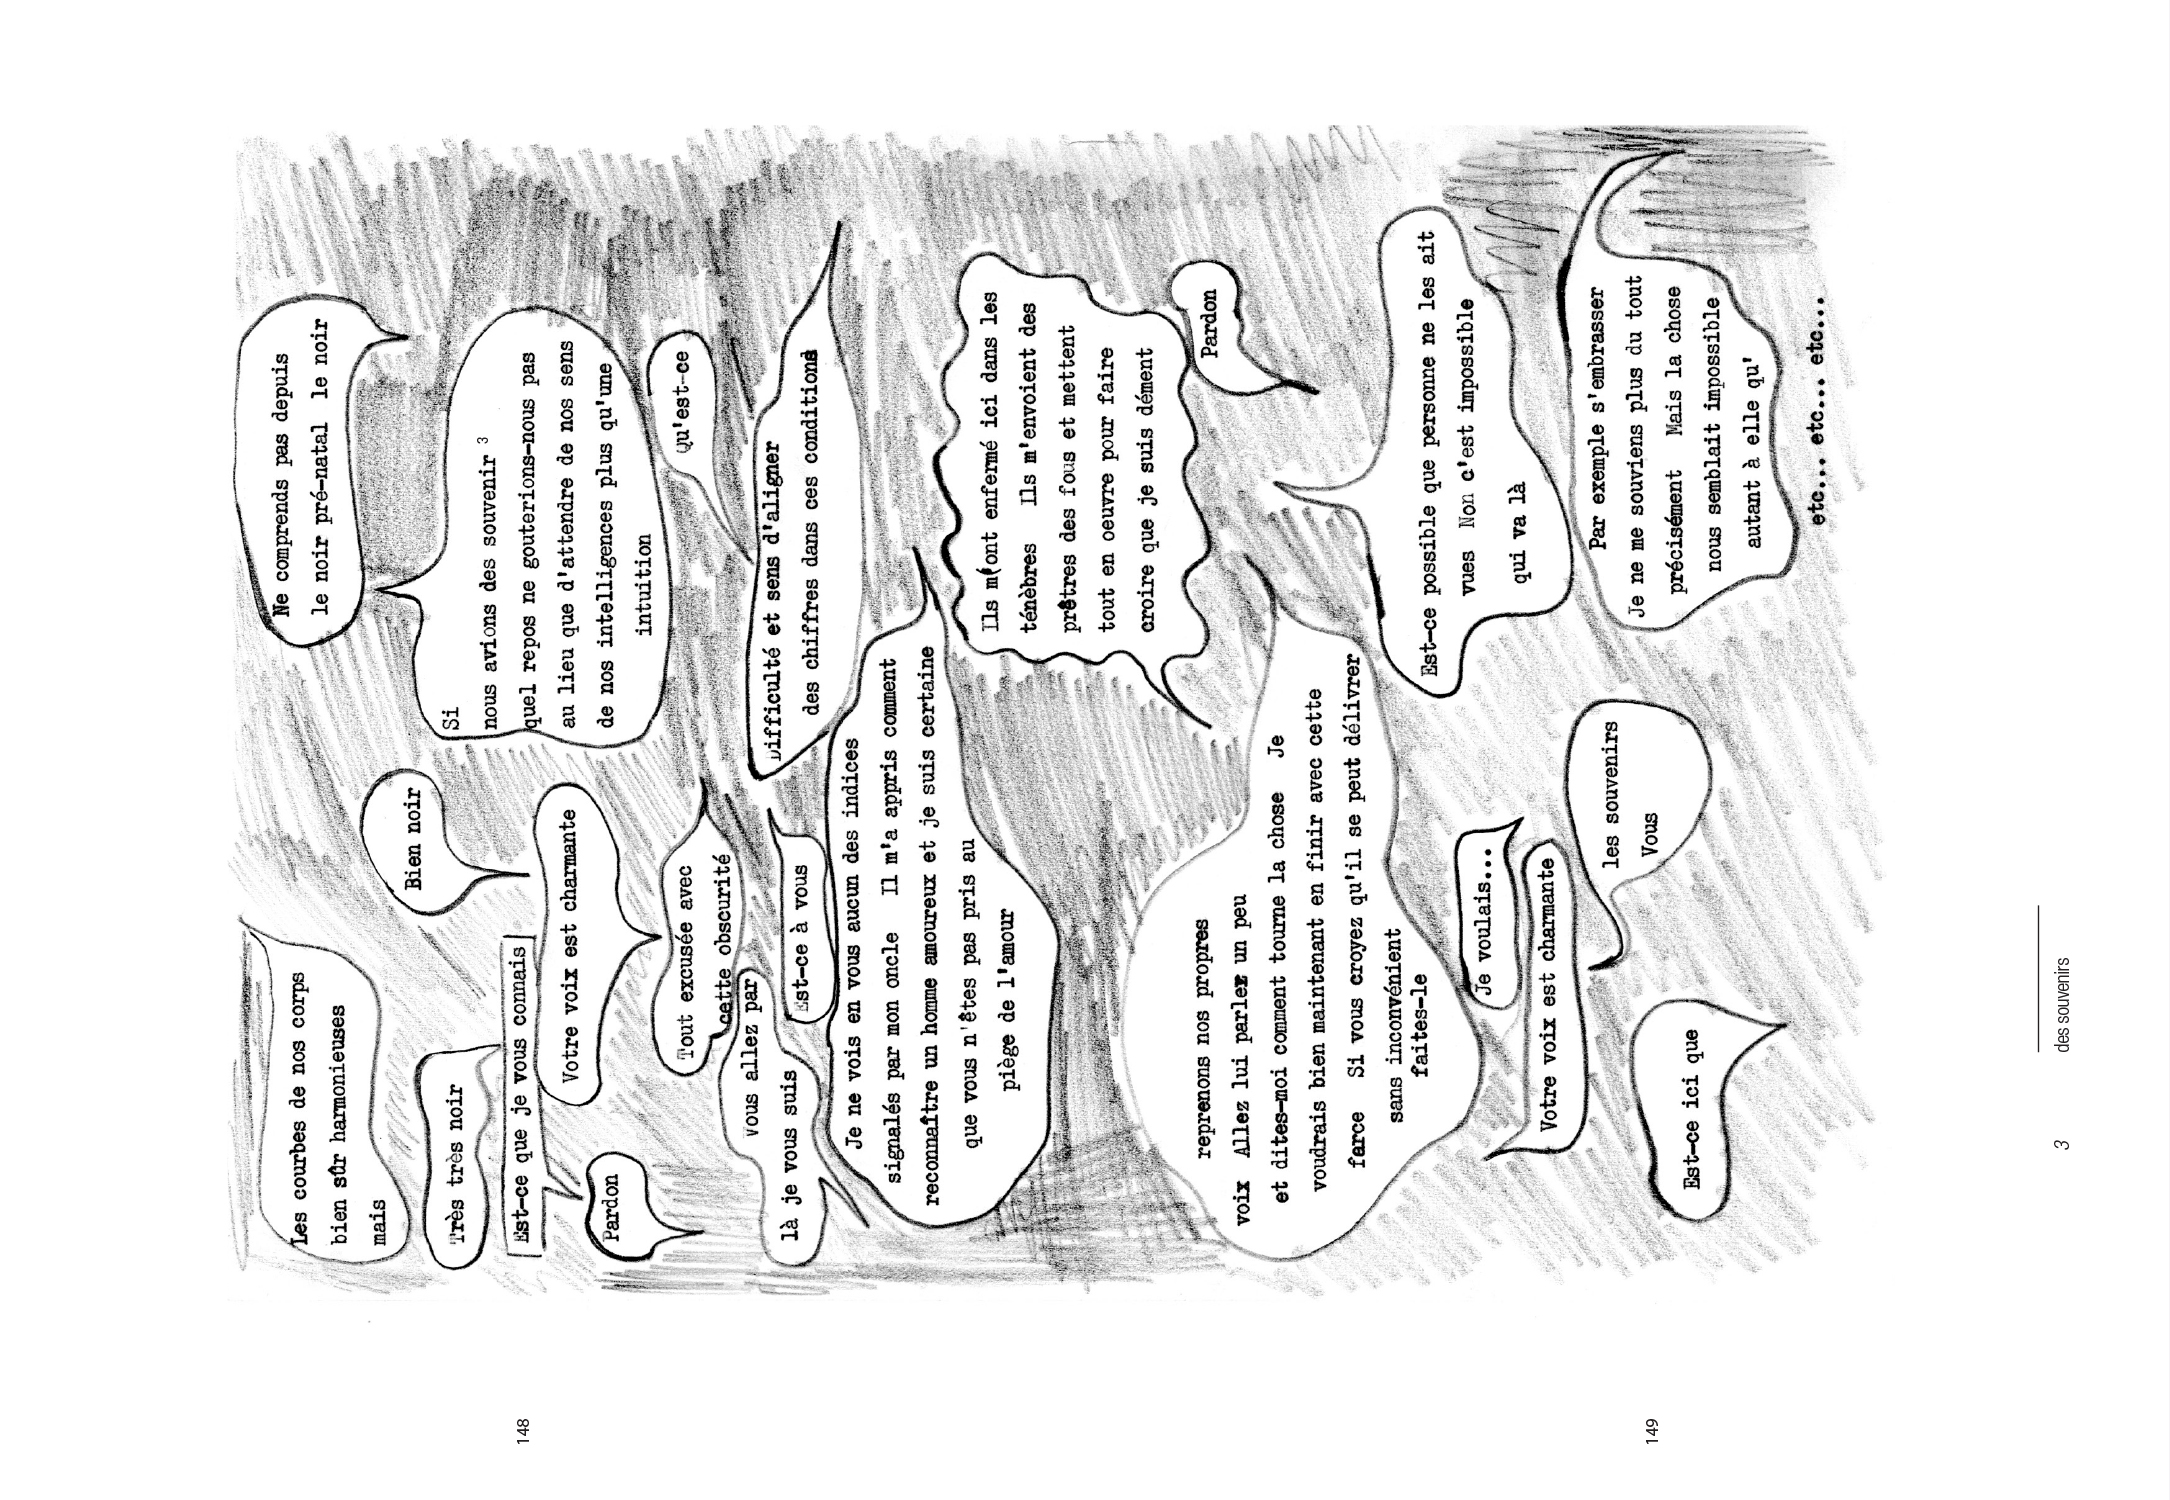 Les courbes de nos corps
bien sûr harmonieuses
mais
Ne comprends pas depuis
le noir pré-natal le noir
Bien noir
Très très noir
Si
nous avions des souvenir ³
quel repos ne gouterions-nous pas
au lieu que d'attendre de nos sens
de nos intelligences plus qu'une
intuition
Est-ce que je vous connais
Votre voix est charmante
Pardon
Tout excusée avec
cette obscurité
Qu'est-ce
vous allez par
là je vous suis
Est-ce à vous
Difficulté et sens d'aligner
des chiffres dans ces conditions
Je ne vois en vous aucun des indices
signalés par mon oncle Il m'a appris comment
reconnaître un homme amoureux et je suis certaine
que vous n'êtes pas pris au
piège de l'amour
Ils m(ont enfermé ici dans les
ténèbres Ils m'envoient des
prêtres des fous et mettent
tout en oeuvre pour faire
croire que je suis dément
Pardon
reprenons nos propres
voix Allez lui parler un peu
et dites-moi comment tourne la chose Je
voudrais bien maintenant en finir avec cette
farce Si vous croyez qu'il se peut délivrer
sans inconvénient
faites-le
Est-ce possible que personne ne les ait
vues Non c'est impossible
qui va là
Je voulais...
Votre voix est charmante
les souvenirs
Vous
Par exemple s'embrasser
Je ne me souviens plus du tout
précisément Mais la chose
nous semblait impossible
autant à elle qu'
Est-ce ici que
etc... etc... etc... etc...
148
149
3 des souvenirs